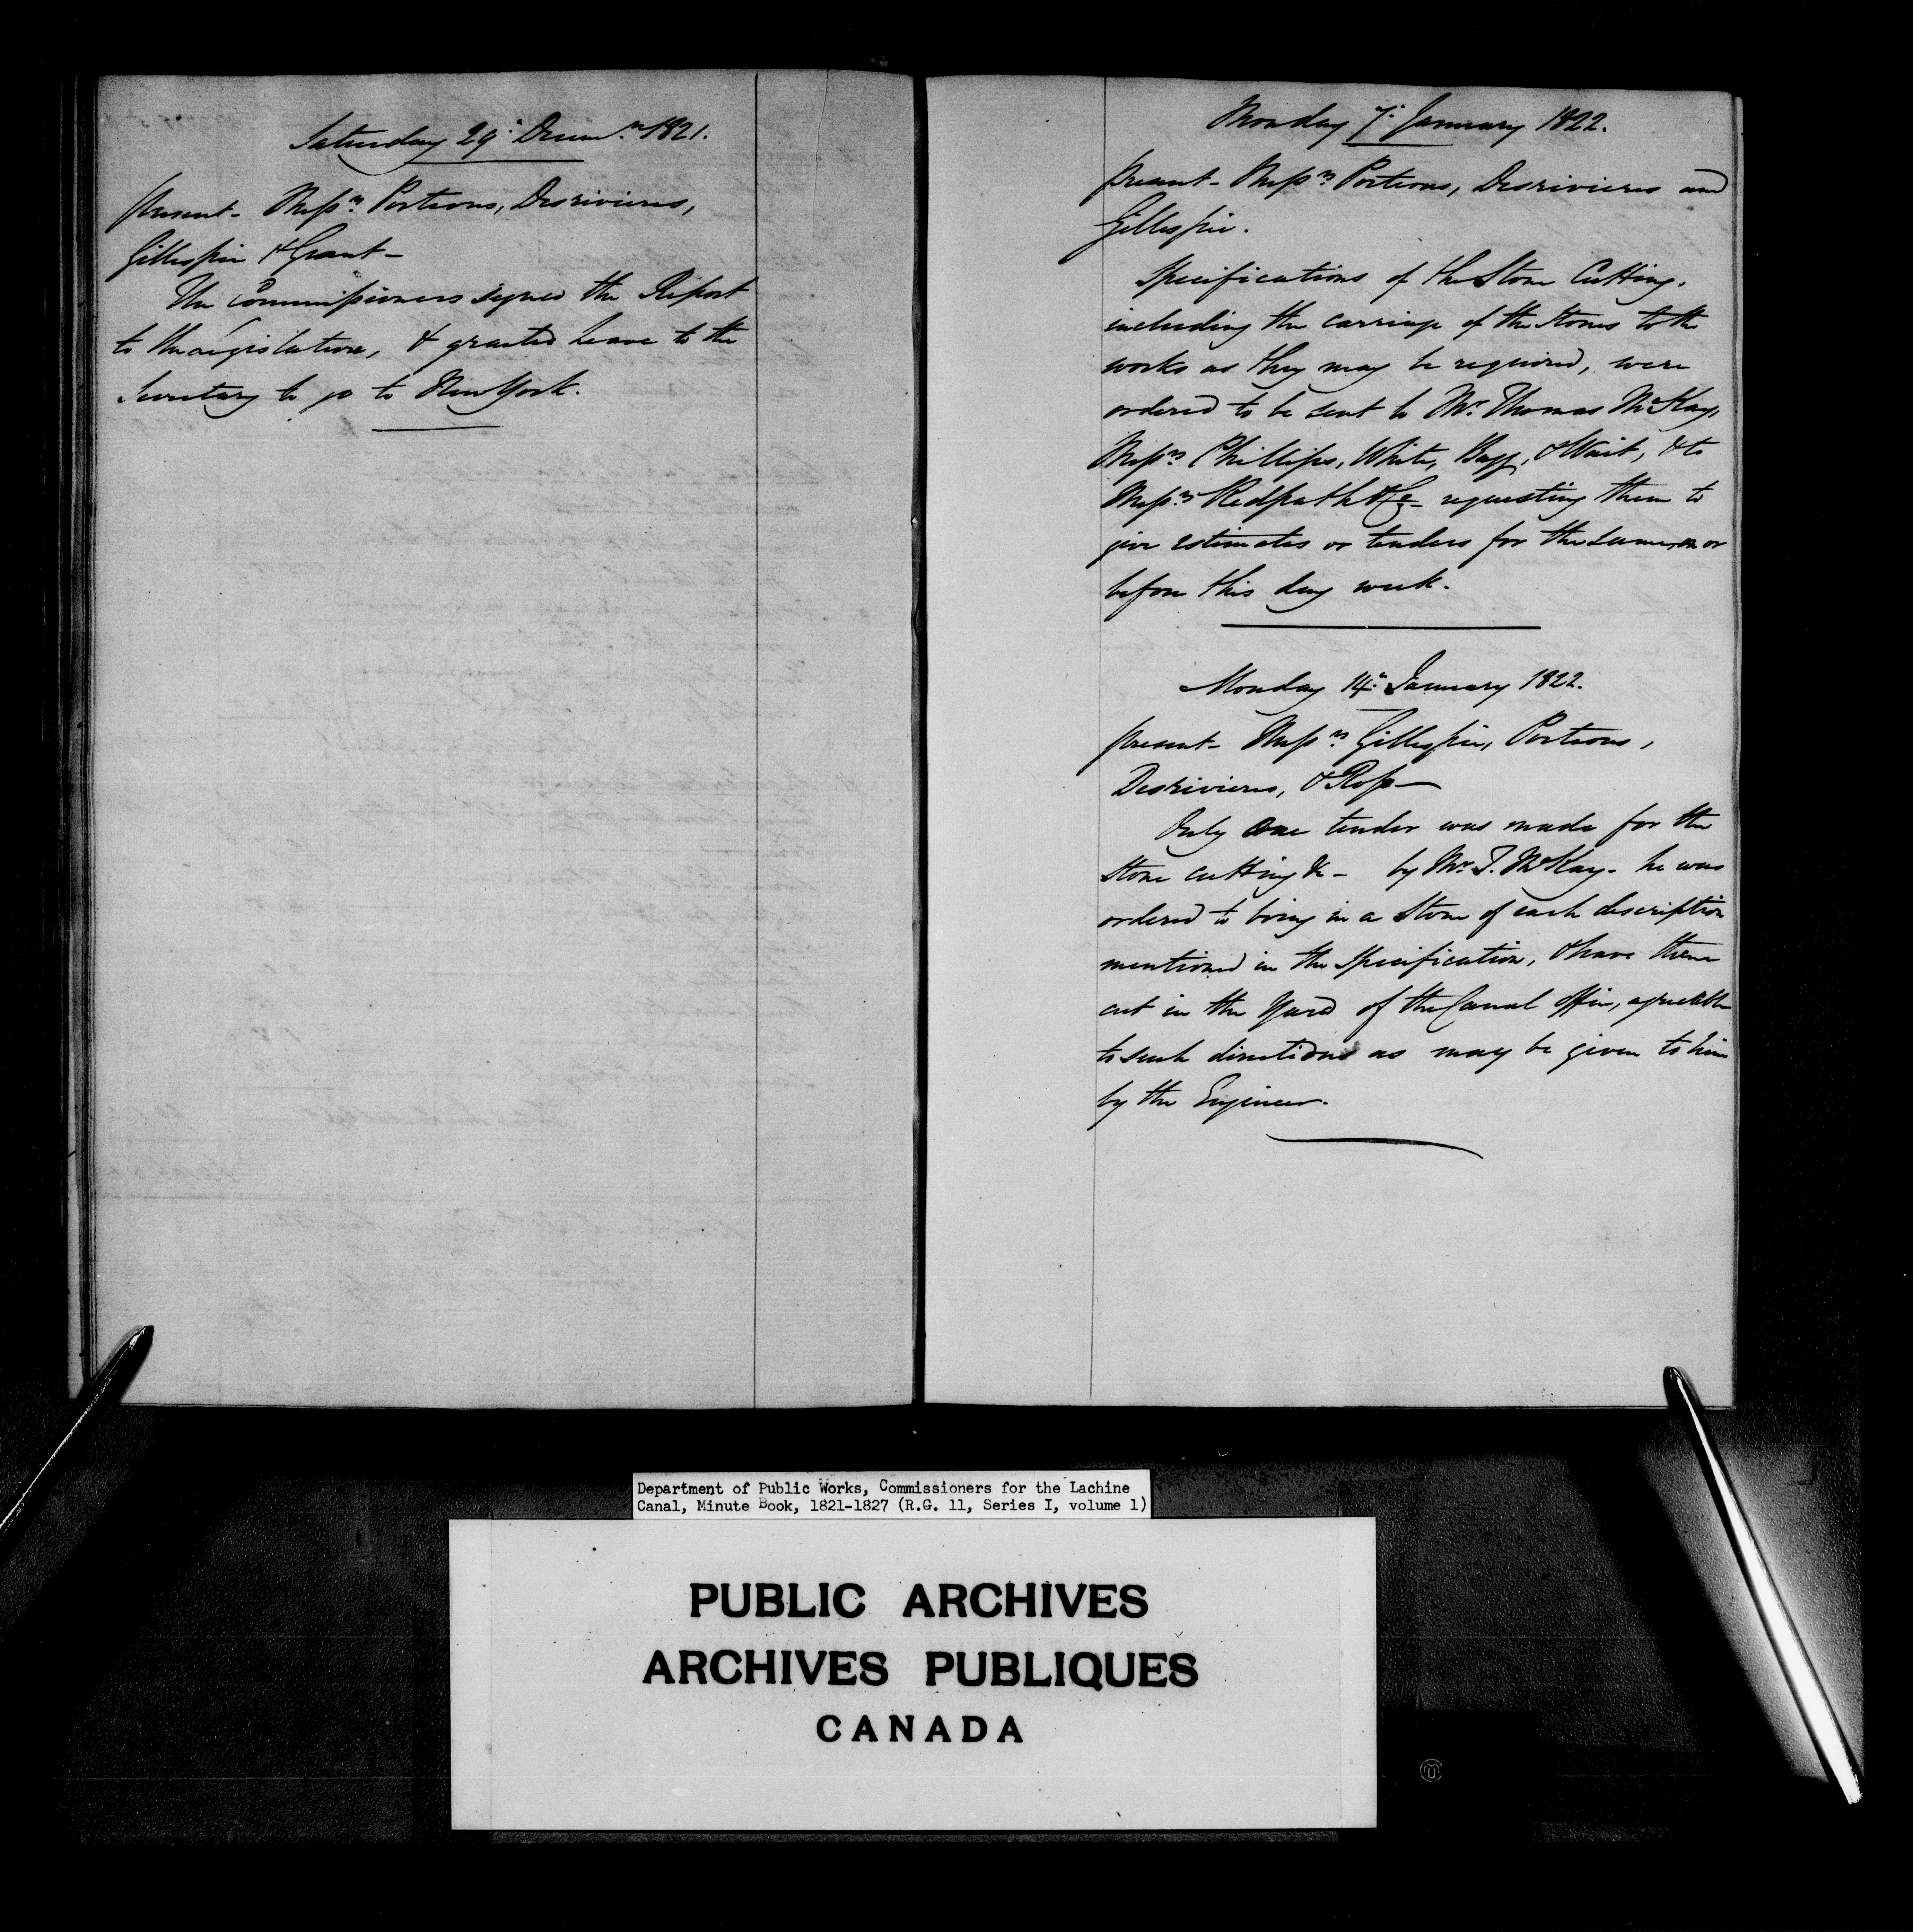 Saturday 29th Decemr. 1821.
present - Messrs. Porteous, Desrivieres,
Gillespie & Grant -
The Commissioners signed the Report
to the Legislature, & granted leave to the
Secretary to go to New York.
Monday 7th January 1822.
present - Messrs. Porteous, Desrivieres and
Gillespie.
Specifications of the Stone Cutting.
including the carriage of the Stones to the
works as they may be required, were
ordered to be sent to Mr. Thomas McKay,
Messrs. Phillips, White, Bagg, & Wait, & to
Messrs. Redpath & Co - requesting them to
give estimates or tenders for the same, on or
before this day week.
Monday 14th January 1822.
present - Messrs. Gillespie, Porteous,
Desrivieres, & Ross -
Only one tender was made for the
Stone cutting &c - by Mr. T. McKay. he was
ordered to bring in a Stone of each description
mentioned in the Specification, & have them
cut in the Yard of the Canal Office, agreeable
to such directions as may be given to him
by the Engineer.
Department of Public Works, Commissioners for the Lachine
Canal, Minute Book, 1821-1827 (R.G. 11, Series I, volume 1)
PUBLIC ARCHIVES
ARCHIVES PUBLIQUES
CANADA